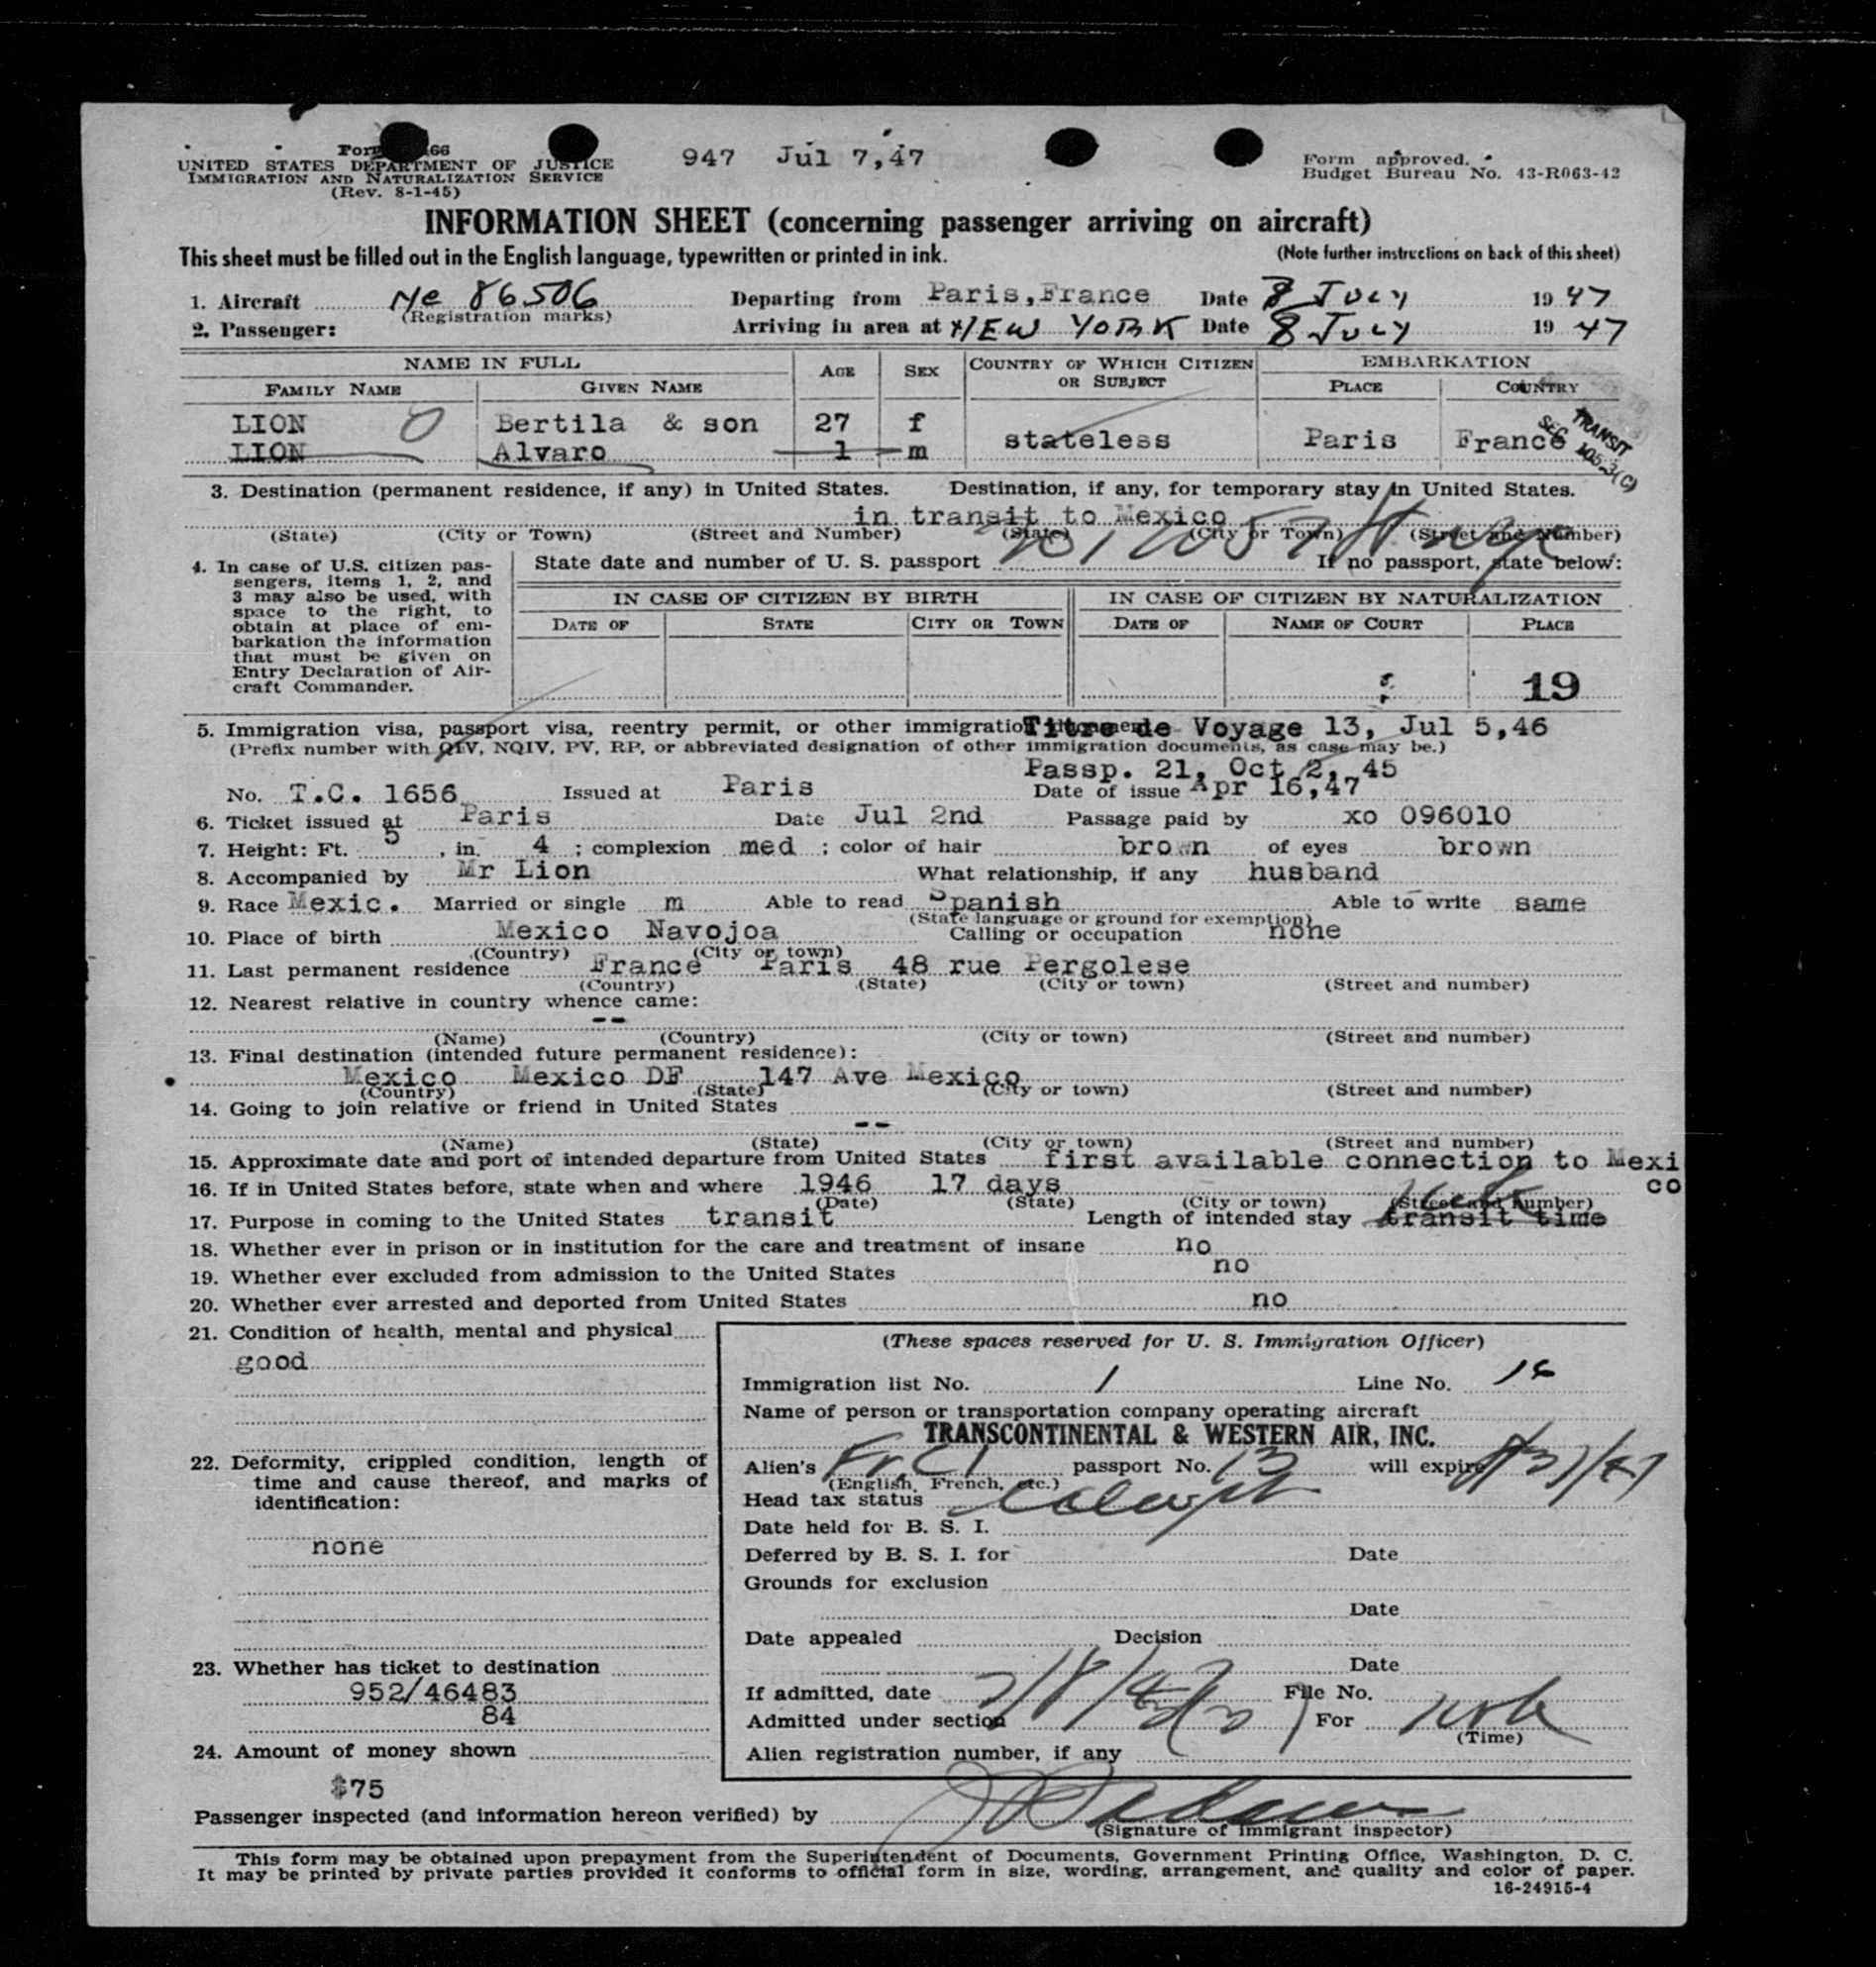 947 Jul 7,47
Form 66
UNITED STATES DEPARTMENT OF JUSTICE
IMMIGRATION AND NATURALIZATION SERVICE
(Rev. 8-1-45)
Form approved.
Budget Bureau No. 43-R063-42
INFORMATION SHEET (concerning passenger arriving on aircraft)
This sheet must be filled out in the English language, typewritten or printed in ink. (Note further instructions on back of this sheet)
1. Aircraft Nc 86506 Departing from Paris, France Date 8 July 1947
(Registration marks)
2. Passenger: Arriving in area at NEW YORK Date 8 July 1947
NAME IN FULL AGE SEX COUNTRY OF WHICH CITIZEN OR SUBJECT EMBARKATION
FAMILY NAME GIVEN NAME PLACE COUNTRY
LION Bertila & son 27 f
LION Alvaro 1 m stateless Paris France
TRANSIT
SEC 105.3(C)
3. Destination (permanent residence, if any) in United States. Destination, if any, for temporary stay in United States.
in transit to Mexico
(State) (City or Town) (Street and Number) (State) (City or Town) (Street and Number)
4. In case of U.S. citizen pas-
sengers, items 1, 2, and
3 may also be used, with
space to the right, to
obtain at place of em-
barkation the information
that must be given on
Entry Declaration of Air-
craft Commander.
State date and number of U. S. passport If no passport, state below:
IN CASE OF CITIZEN BY BIRTH IN CASE OF CITIZEN BY NATURALIZATION
DATE OF STATE CITY OR TOWN DATE OF NAME OF COURT PLACE
19
5. Immigration visa, passport visa, reentry permit, or other immigration Titre de Voyage 13, Jul 5,46
(Prefix number with QIV, NQIV, PV, RP, or abbreviated designation of other immigration documents, as case may be.)
Passp. 21, Oct 2, 45
No. T.C. 1656 Issued at Paris Date of issue Apr 16,47
6. Ticket issued at Paris Date Jul 2nd Passage paid by xo 096010
7. Height: Ft. 5, in. 4; complexion med; color of hair brown of eyes brown
8. Accompanied by Mr Lion What relationship, if any husband
9. Race Mexic. Married or single m Able to read Spanish Able to write same
(State language or ground for exemption)
10. Place of birth Mexico Navojoa Calling or occupation none
(Country) (City or town)
11. Last permanent residence France Paris 48 rue Pergolese
(Country) (State) (City or town) (Street and number)
12. Nearest relative in country whence came:
--
(Name) (Country) (City or town) (Street and number)
13. Final destination (intended future permanent residence):
Mexico Mexico DF 147 Ave Mexico
(Country) (State) (City or town) (Street and number)
14. Going to join relative or friend in United States
--
(Name) (State) (City or town) (Street and number)
15. Approximate date and port of intended departure from United States first available connection to Mexi
co
16. If in United States before, state when and where 1946 17 days
(Date) (State) (City or town) (Street and Number)
17. Purpose in coming to the United States transit Length of intended stay transit time
18. Whether ever in prison or in institution for the care and treatment of insane no
19. Whether ever excluded from admission to the United States no
20. Whether ever arrested and deported from United States no
21. Condition of health, mental and physical
good
22. Deformity, crippled condition, length of
time and cause thereof, and marks of
identification:
none
23. Whether has ticket to destination
952/46483
84
24. Amount of money shown
$75
(These spaces reserved for U. S. Immigration Officer)
Immigration list No. 1 Line No.
Name of person or transportation company operating aircraft
TRANSCONTINENTAL & WESTERN AIR, INC.
Alien's passport No. 13 will expire
(English, French, etc.)
Head tax status
Date held for B. S. I.
Deferred by B. S. I. for Date
Grounds for exclusion
Date
Date appealed Decision
Date
If admitted, date 7/8/47 File No.
Admitted under section For
(Time)
Alien registration number, if any
Passenger inspected (and information hereon verified) by
(Signature of Immigrant Inspector)
This form may be obtained upon prepayment from the Superintendent of Documents, Government Printing Office, Washington, D. C.
It may be printed by private parties provided it conforms to official form in size, wording, arrangement, and quality and color of paper.
16-24915-4